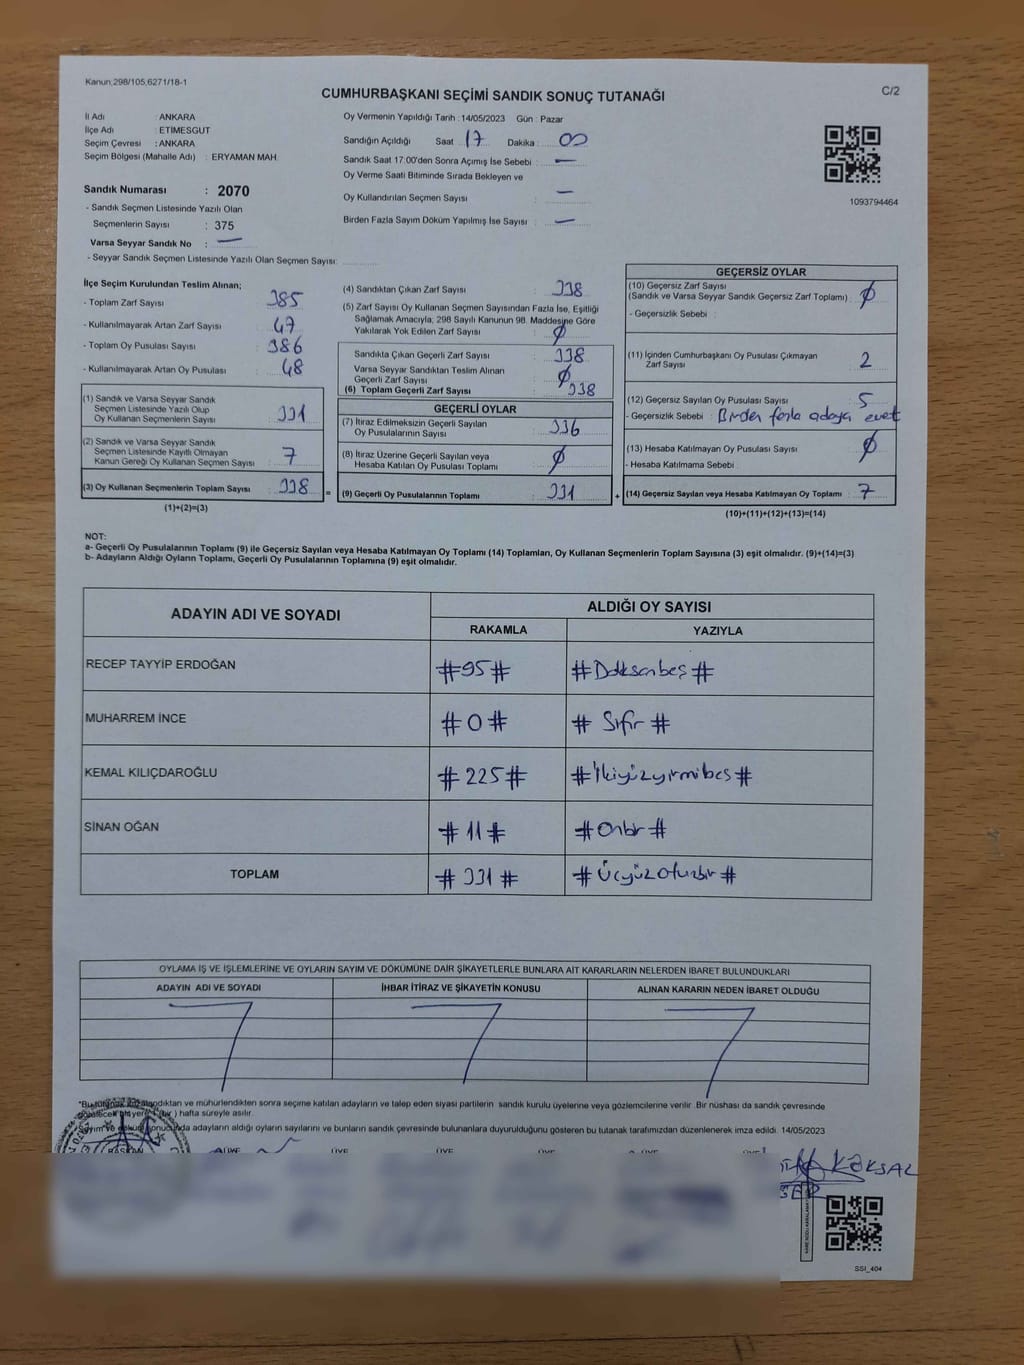 Kanun;298/105,6271/18-1
C/2
CUMHURBAŞKANI SEÇİMİ SANDIK SONUÇ TUTANAĞI
İl Adı : ANKARA
İlçe Adı : ETİMESGUT
Seçim Çevresi : ANKARA
Seçim Bölgesi (Mahalle Adı) : ERYAMAN MAH.
Sandık Numarası : 2070
- Sandık Seçmen Listesinde Yazılı Olan
Seçmenlerin Sayısı : 375
Varsa Seyyar Sandık No : —
- Seyyar Sandık Seçmen Listesinde Yazılı Olan Seçmen Sayısı:
Oy Vermenin Yapıldığı Tarih : 14/05/2023 Gün : Pazar
Sandığın Açıldığı Saat 17 Dakika : 00
Sandık Saat 17:00'den Sonra Açımış İse Sebebi : —
Oy Verme Saati Bitiminde Sırada Bekleyen ve
Oy Kullandırılan Seçmen Sayısı : —
Birden Fazla Sayım Döküm Yapılmış İse Sayısı : —
1093794464
İlçe Seçim Kurulundan Teslim Alınan;
- Toplam Zarf Sayısı : 385
- Kullanılmayarak Artan Zarf Sayısı : 47
- Toplam Oy Pusulası Sayısı : 386
- Kullanılmayarak Artan Oy Pusulası : 48
(1) Sandık ve Varsa Seyyar Sandık
Seçmen Listesinde Yazılı Olup
Oy Kullanan Seçmenlerin Sayısı : 331
(2) Sandık ve Varsa Seyyar Sandık
Seçmen Listesinde Kayıtlı Olmayan
Kanun Gereği Oy Kullanan Seçmen Sayısı : 7
(3) Oy Kullanan Seçmenlerin Toplam Sayısı : 338
(1)+(2)=(3)
(4) Sandıktan Çıkan Zarf Sayısı : 338
(5) Zarf Sayısı Oy Kullanan Seçmen Sayısından Fazla İse, Eşitliği
Sağlamak Amacıyla; 298 Sayılı Kanunun 98. Maddesine Göre
Yakılarak Yok Edilen Zarf Sayısı : 0
Sandıkta Çıkan Geçerli Zarf Sayısı : 338
Varsa Seyyar Sandıktan Teslim Alınan
Geçerli Zarf Sayısı : 0
(6) Toplam Geçerli Zarf Sayısı : 338
GEÇERLİ OYLAR
(7) İtiraz Edilmeksizin Geçerli Sayılan
Oy Pusulalarının Sayısı : 336
(8) İtiraz Üzerine Geçerli Sayılan veya
Hesaba Katılan Oy Pusulası Toplamı : 0
= (9) Geçerli Oy Pusulalarının Toplamı : 331
GEÇERSİZ OYLAR
(10) Geçersiz Zarf Sayısı
(Sandık ve Varsa Seyyar Sandık Geçersiz Zarf Toplamı) : 0
- Geçersizlik Sebebi :
(11) İçinden Cumhurbaşkanı Oy Pusulası Çıkmayan
Zarf Sayısı : 2
(12) Geçersiz Sayılan Oy Pusulası Sayısı : 5
- Geçersizlik Sebebi : Birden fazla adaya evet
(13) Hesaba Katılmayan Oy Pusulası Sayısı : 0
- Hesaba Katılmama Sebebi :
+ (14) Geçersiz Sayılan veya Hesaba Katılmayan Oy Toplamı : 7
(10)+(11)+(12)+(13)=(14)
NOT:
a- Geçerli Oy Pusulalarının Toplamı (9) ile Geçersiz Sayılan veya Hesaba Katılmayan Oy Toplamı (14) Toplamları, Oy Kullanan Seçmenlerin Toplam Sayısına (3) eşit olmalıdır. (9)+(14)=(3)
b- Adayların Aldığı Oyların Toplamı, Geçerli Oy Pusulalarının Toplamına (9) eşit olmalıdır.
ADAYIN ADI VE SOYADI ALDIĞI OY SAYISI
RAKAMLA YAZIYLA
RECEP TAYYİP ERDOĞAN #95# #Doksanbeş#
MUHARREM İNCE #0# #Sıfır#
KEMAL KILIÇDAROĞLU #225# #İkiyüzyirmibeş#
SİNAN OĞAN #11# #Onbir#
TOPLAM #331# #Üçyüzotuzbir#
OYLAMA İŞ VE İŞLEMLERİNE VE OYLARIN SAYIM VE DÖKÜMÜNE DAİR ŞİKAYETLERLE BUNLARA AİT KARARLARIN NELERDEN İBARET BULUNDUKLARI
ADAYIN ADI VE SOYADI İHBAR İTİRAZ VE ŞİKAYETİN KONUSU ALINAN KARARIN NEDEN İBARET OLDUĞU
ve mühürlendikten sonra seçime katılan adayların ve talep eden siyasi partilerin sandık kurulu üyelerine veya gözlemcilerine verilir. Bir nüshası da sandık çevresinde
hafta süreyle asılır.
adayların aldığı oyların sayılarını ve bunların sandık çevresinde bulunanlara duyurulduğunu gösteren bu tutanak tarafımızdan düzenlenerek imza edildi. 14/05/2023
BAŞKAN ÜYE ÜYE ÜYE ÜYE
KÖKSAL
SSİ_404